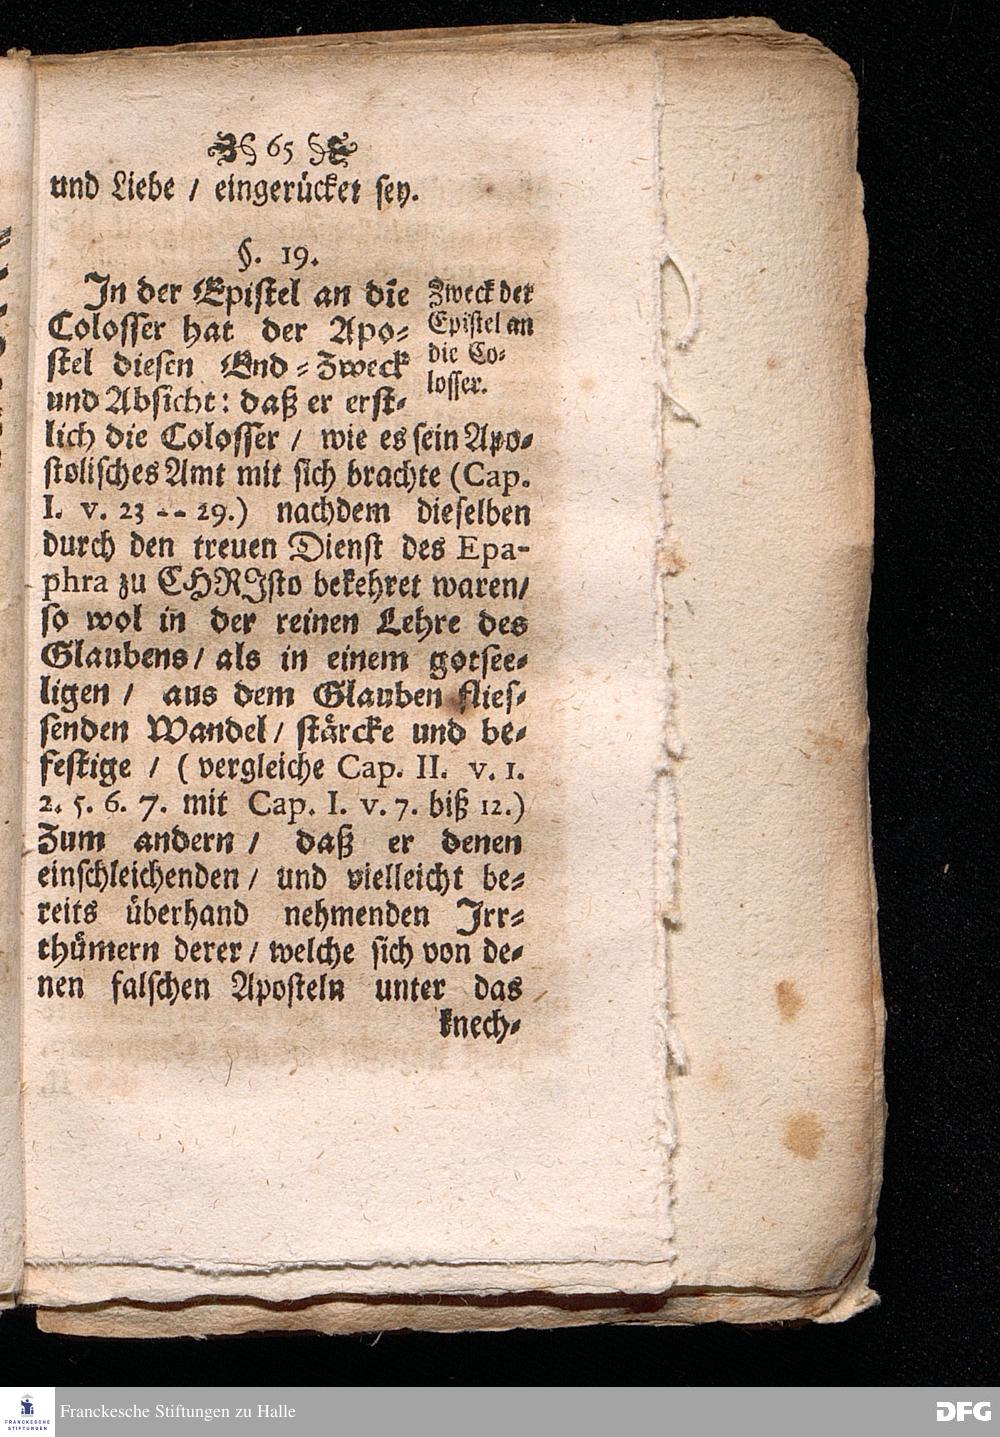 65
und Liebe / eingerücket sey.
§. 19.
In der Epistel an die
Colosser hat der Apo-
stel diesen End-Zweck
und Absicht: daß er erst-
Zweck der
Epistel an
die Co-
losser.
lich die Colosser / wie es sein Apo-
stolisches Amt mit sich brachte (Cap.
I. v. 23 -- 29.) nachdem dieselben
durch den treuen Dienst des Epa-
phra zu CHRIsto bekehret waren/
so wol in der reinen Lehre des
Glaubens/ als in einem gotsee-
ligen / aus dem Glauben flies-
senden Wandel/ stärcke und be-
festige / ( vergleiche Cap. II. v. 1.
2. 5. 6. 7. mit Cap. I. v. 7. biß 12.)
Zum andern / daß er denen
einschleichenden / und vielleicht be-
reits überhand nehmenden Irr-
thümern derer/ welche sich von de-
nen falschen Aposteln unter das
knech-
Franckesche Stiftungen zu Halle
FRANCKESCHE
STIFTUNGEN
DFG